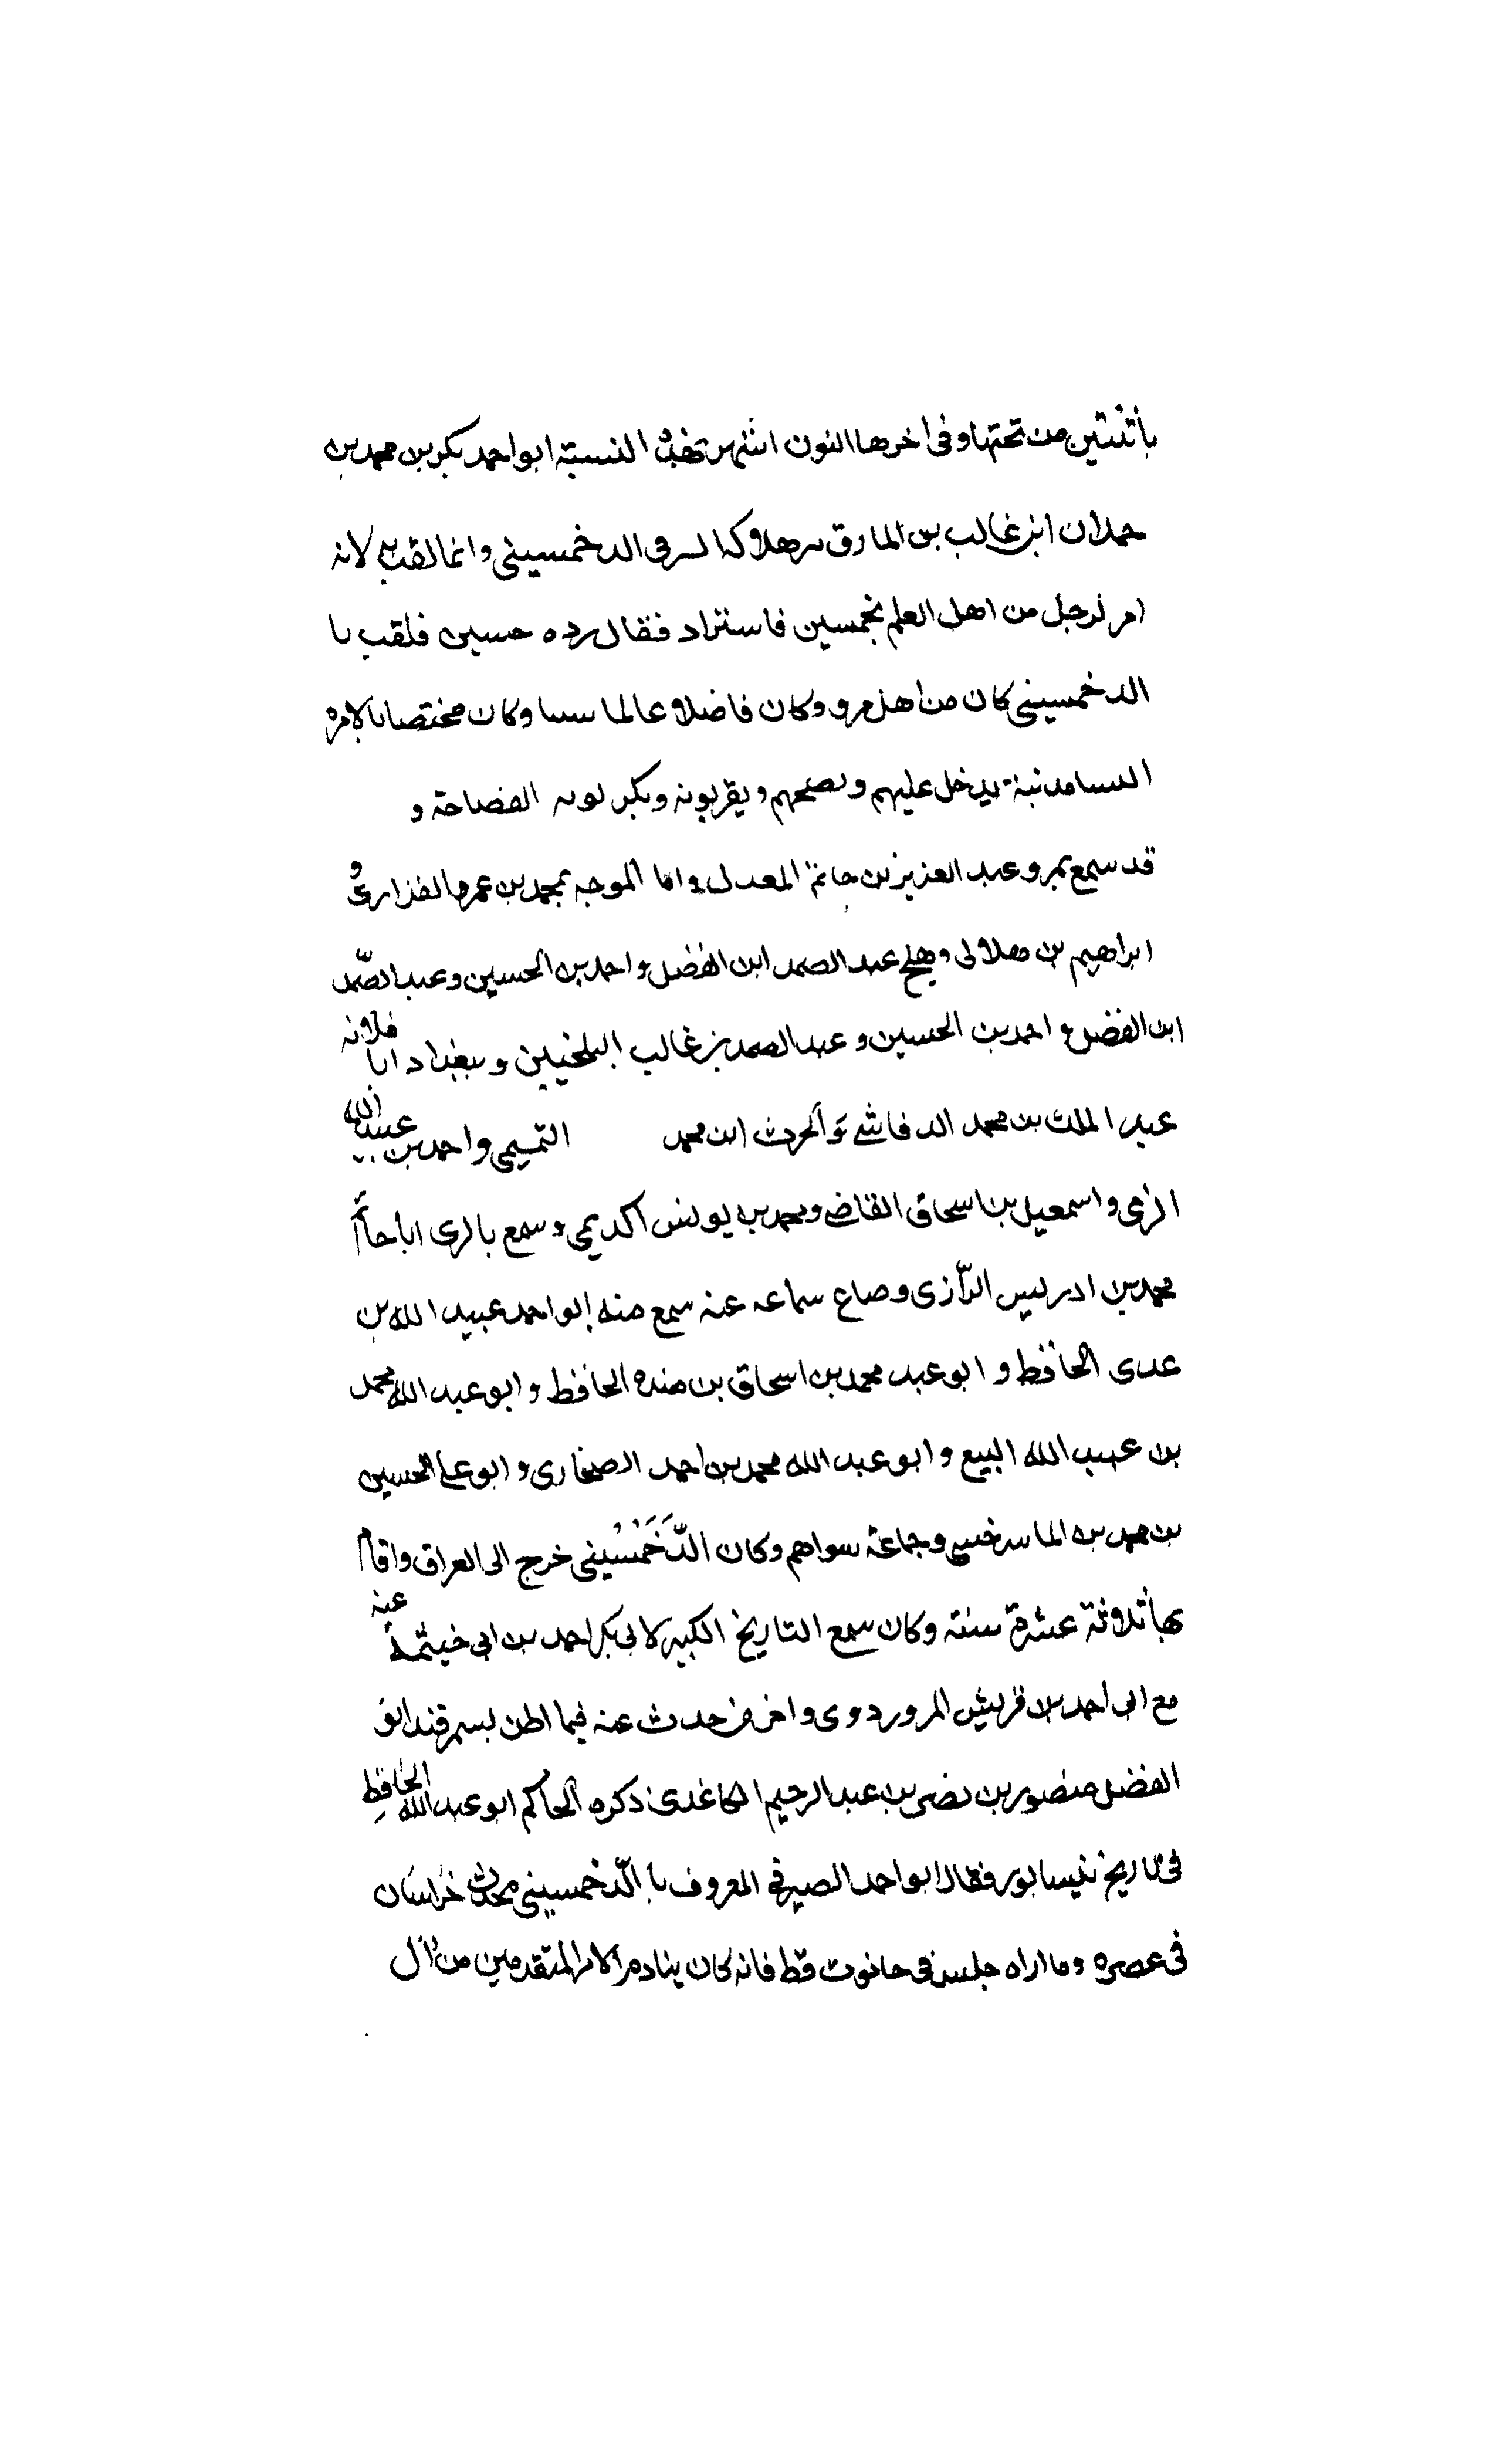 باثنتين من تحتها وفى اخرها النون اشتهر بهذه النسبة ابو احمد بكر بن محمد بن
حمدان ابن غالب بن الدخمسينى وانما لقب به لانه
امر لرجل من اهل العلم بخمسين فاستزاد فقال رده حسين فلقب با
الدخمسينى كان من اهل مرو وكان فاضلا عالما وكان مختصا بالامره
يدخل عليهم ويقربونه ويكر الفضاحة و
قد سمع بمرو عبد العزيز بن حاتم المعدل و ابا الموجه محمد بن عمرو الفزارى و
ابراهيم بن هلال و ببلخ عبد الصمد ابن الفضل و احمد بن الحسين و عبد الصّمد
ابن الفضل و احمد بن الحسين و عبد الصمد بن غالب البلخيين و ببغداد ابا قلابه
عبد الملك بن محمد الدقاشى و الحرث ابن محمد التميمى و احمد بن عبيد الله
النرمى و اسمعيل بن اسحاق القاضى و محمد بن يونس اكديمى و سمع بالرى ابا حاتم
محمد بن ادريس الرّازى وضاع سماعه عنه سمع منه ابو احمد عبيد الله بن
عدى الحافظ و ابو عبد محمد بن اسحاق بن منده الحافظ و ابو عبد الله محمد
بن عبد الله البيع و ابو عبد الله محمد بن احمد الصخارى و ابو على الحسين
بن محمد بن الماسرخسى وجماعة سواهم وكان الدَّخَمْسُينى خرج الى العراق واقام
بها ثلاثة عشرة سنة وكان سمع التاريخ الكبير لابى بكر احمد بن ابى خيثمة عنه
مع ابى احمد بن قريش المروردوى واخر من حدث عنه فيما اظن بسمرقند ابو
الفضل منصور بن نصر بن عبد الرحيم الكاغدى ذكره الحاكم ابو عبد الله الحافظ
فى تاريخ نيسابور فقال ابو احمد الصيرفى المعروف بالدّخمسينى محدث خراسان
فى عصره وما اراه جلس فى حانوت قط فانه كان ينادم الامرا المتقدمين من آل